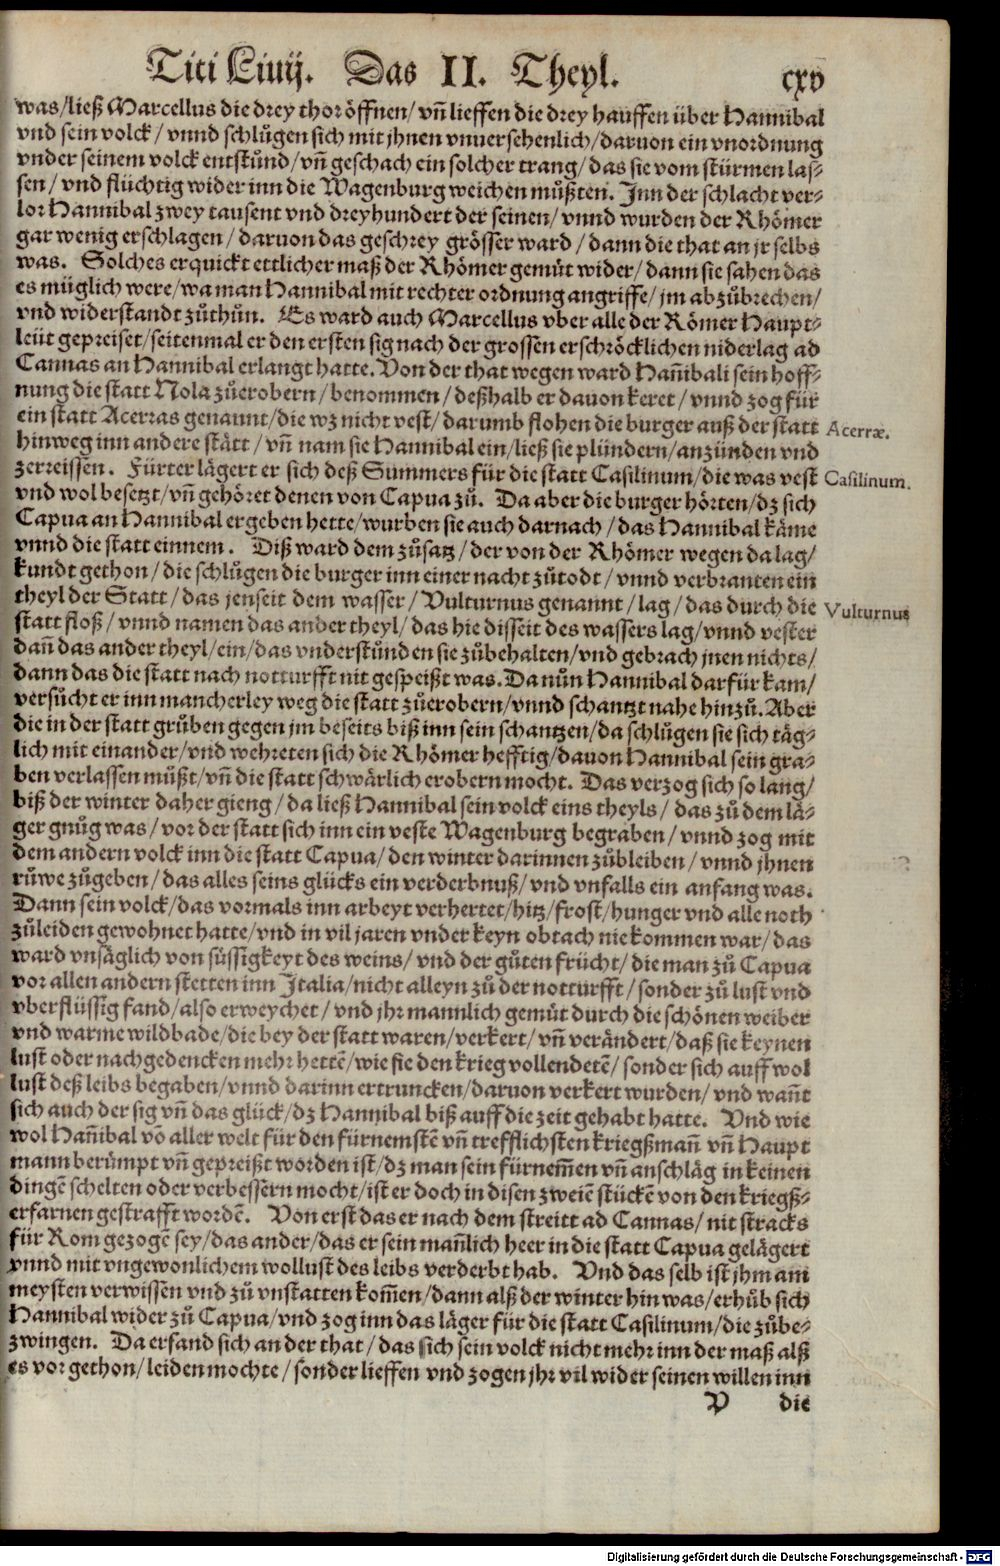 Titi Liuij. Das II. Theyl. cxv
was/ließ Marcellus die drey thor öffnen/vn̄ lieffen die drey hauffen über Hannibal
vnd sein volck/vnnd schlůgen sich mit jhnen vnuersehenlich/daruon ein vnordnung
vnder seinem volck entstůnd/vn̄ geschach ein solcher trang/das sie vom stürmen las-
sen/vnd flüchtig wider inn die Wagenburg weichen můßten. Inn der schlacht ver-
lor Hannibal zwey tausent vnd dreyhundert der seinen/vnnd wurden der Rhömer
gar wenig erschlagen/daruon das geschrey grösser ward/dann die that an jr selbs
was. Solches erquickt ettlicher maß der Rhömer gemüt wider/dann sie sahen das
es müglich were/wa man Hannibal mit rechter ordnung angriffe/jm abzůbrechen/
vnd widerstandt zůthůn. Es ward auch Marcellus vber alle der Römer Haupt-
leüt gepreiset/seitenmal er den ersten sig nach der grossen erschröcklichen niderlag ad
Cannas an Hannibal erlangt hatte. Von der that wegen ward Han̄ibali sein hoff-
nung die statt Nola zůerobern/benommen/deßhalb er dauon keret/vnnd zog für
ein statt Acerras genannt/die wz nicht vest/darumb flohen die burger auß der statt
Acerræ.
hinweg inn andere stätt/vn̄ nam sie Hannibal ein/ließ sie plündern/anzünden vnd
zerreissen. Fürter lägert er sich deß Summers für die statt Casilinum/die was vest
Casilinum.
vnd wol besetzt/vn̄ gehöret denen von Capua zů. Da aber die burger hörten/dz sich
Capua an Hannibal ergeben hette/wurben sie auch darnach/das Hannibal käme
vnnd die statt einnem. Diß ward dem zůsatz/der von der Rhömer wegen da lag/
kundt gethon/die schlůgen die burger inn einer nacht zůtodt/vnnd verbranten ein
theyl der Statt/das jenseit dem wasser/Vulturnus genannt/lag/das durch die
Vulturnus
statt floß/vnnd namen das ander theyl/das hie disseit des wassers lag/vnnd vester
dan̄ das ander theyl/ein/das vnderstůnden sie zůbehalten/vnd gebrach jnen nichts/
dann das die statt nach notturfft nit gespeißt was. Da nůn Hannibal darfür kam/
versůcht er inn mancherley weg die statt zůerobern/vnnd schantzt nahe hinzů. Aber
die in der statt grůben gegen jm beseits biß inn sein schantzen/da schlůgen sie sich täg-
lich mit einander/vnd wehreten sich die Rhömer hefftig/dauon Hannibal sein gra-
ben verlassen můßt/vn̄ die statt schwärlich erobern mocht. Das verzog sich so lang/
biß der winter daher gieng/da ließ Hannibal sein volck eins theyls/das zů dem lä-
ger gnůg was/vor der statt sich inn ein veste Wagenburg begraben/vnnd zog mit
dem andern volck inn die statt Capua/den winter darinnen zůbleiben/vnnd jhnen
růwe zůgeben/das alles seins glücks ein verderbnuß/vnd vnfalls ein anfang was.
Dann sein volck/das vormals inn arbeyt verhertet/hitz/frost/hunger vnd alle noth
zůleiden gewohnet hatte/vnd in vil jaren vnder keyn obtach nie kommen war/das
ward vnsäglich von süssigkeyt des weins/vnd der gůten frücht/die man zů Capua
vor allen andern stetten inn Italia/nicht alleyn zů der notturfft/sonder zů lust vnd
vberflüssig fand/also erweychet/vnd jhr mannlich gemüt durch die schönen weiber
vnd warme wildbade/die bey der statt waren/verkert/vn̄ verändert/daß sie keynen
lust oder nachgedencken mehr hettē/wie sie den krieg vollendetē/sonder sich auff wol
lust deß leibs begaben/vnnd darinn ertruncken/daruon verkert wurden/vnd wan̄t
sich auch der sig vn̄ das glück/dz Hannibal biß auff die zeit gehabt hatte. Vnd wie
wol Han̄ibal vō aller welt für den fürnemstē vn̄ trefflichsten kriegßman̄ vn̄ Haupt
mann berümpt vn̄ gepreißt worden ist/dz man sein fürnem̄en vn̄ anschläg in keinen
dingē schelten oder verbessern mocht/ist er doch in disen zweiē stückē von den kriegß-
erfarnen gestrafft wordē. Von erst das er nach dem streitt ad Cannas/nit stracks
für Rom gezogē sey/das ander/das er sein man̄lich heer in die statt Capua gelägert
vnnd mit vngewonlichem wollust des leibs verderbt hab. Vnd das selb ist jhm am
meysten verwissen vnd zů vnstatten kom̄en/dann alß der winter hin was/erhůb sich
Hannibal wider zů Capua/vnd zog inn das läger für die statt Casilinum/die zůbe-
zwingen. Da erfand sich an der that/das sich sein volck nicht mehr inn der maß alß
es vor gethon/leiden mochte/sonder lieffen vnd zogen jhr vil wider seinen willen inn
V die
Digitalisierung gefördert durch die Deutsche Forschungsgemeinschaft - DFG